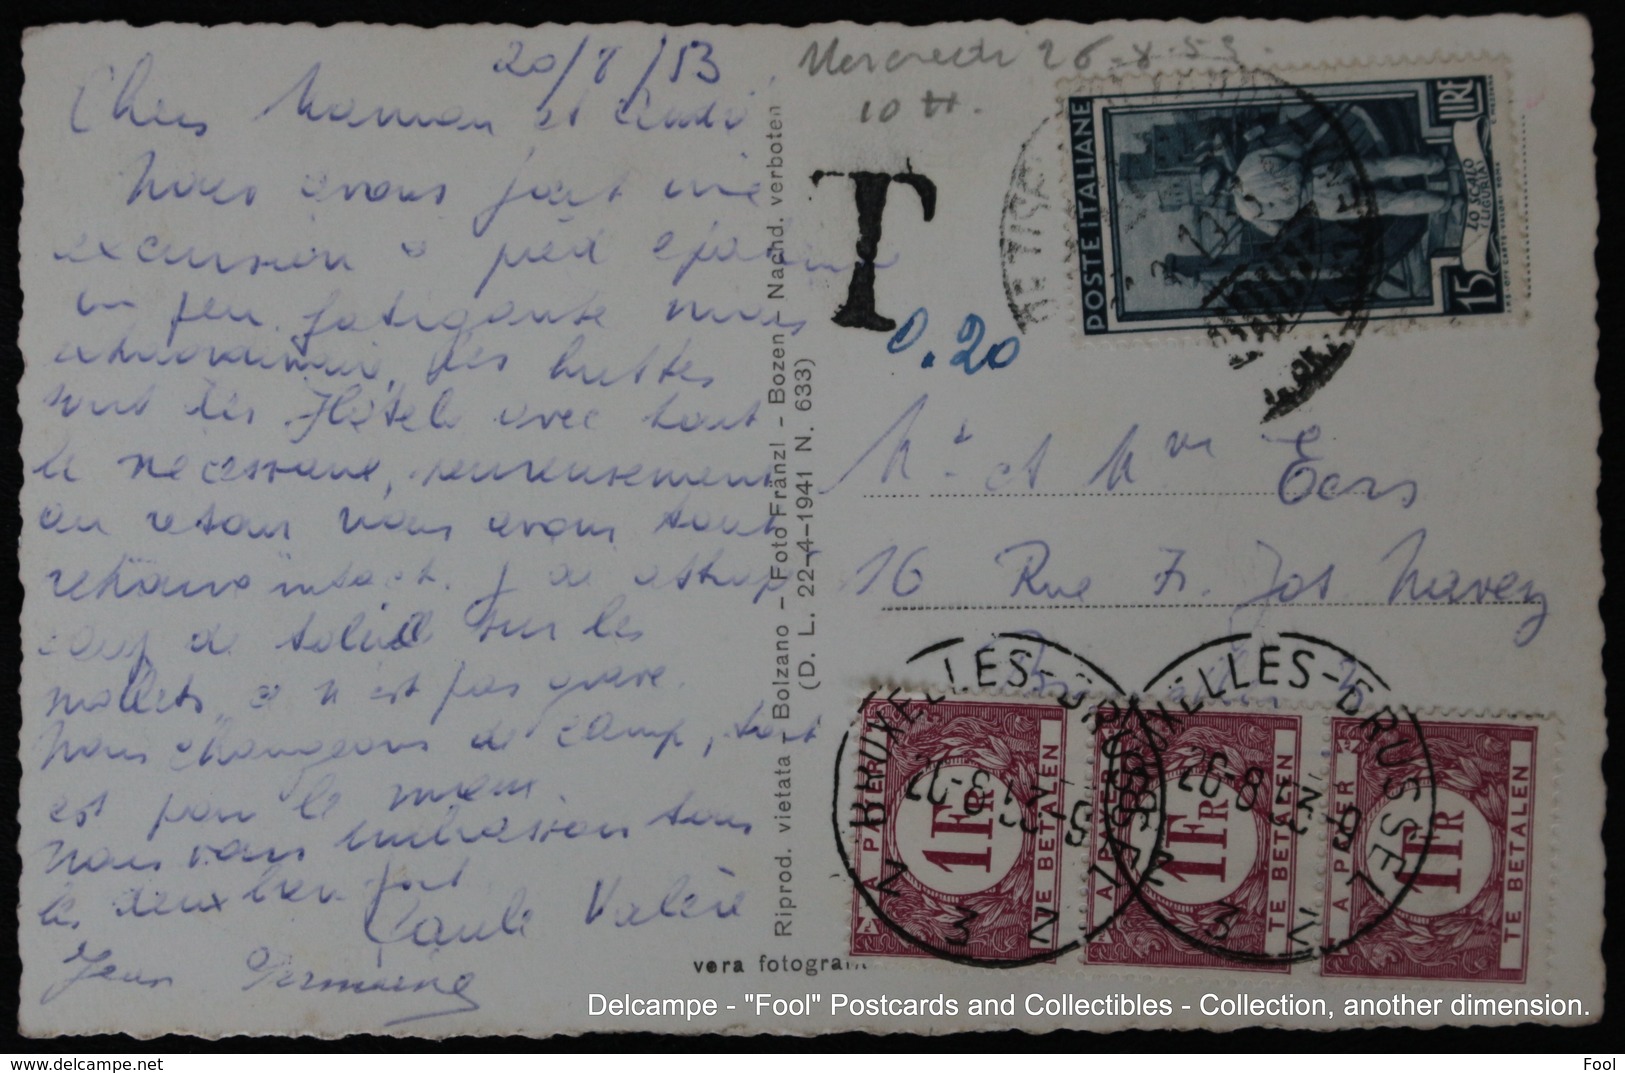 20/8/53
Chers Maman et
Nous avons fait une
excursion à pied
un peu fatigante mais
extraordinaire, les huttes
sont des Hôtels avec tout
le nécessaire, heureusement
au retour nous avons tout
retrouvé intact. J'ai attrapé
coup de soleil sur les
mollets, ce n'est pas grave.
Nous changeons de camp, tout
est pour le mieux
Nous vous embrassons tous
les deux bien fort
Paule Valère
Jean Germaine
Riprod. vietata - Bolzano - Foto Fränzl - Bozen - Nachd. verboten
(D. L. 22-4-1941 N. 633)
vera fotografi
Mercredi 26-8-53.
10 H.
T
0.20
POSTE ITALIANE
15 LIRE
LO SCALO
(LIGURIA)
Mr et Mme Eers
16 Rue Fr. Jos Navez
Bruxelles 3
BRUXELLES-BRUSSEL
26-8 53
N 3 N
BRUXELLES-BRUSSEL
26-8 53
3 N
A PAYER
1 FR
TE BETALEN
A PAYER
1 FR
TE BETALEN
A PAYER
1 FR
TE BETALEN
Delcampe - "Fool" Postcards and Collectibles - Collection, another dimension.
www.delcampe.net
Fool